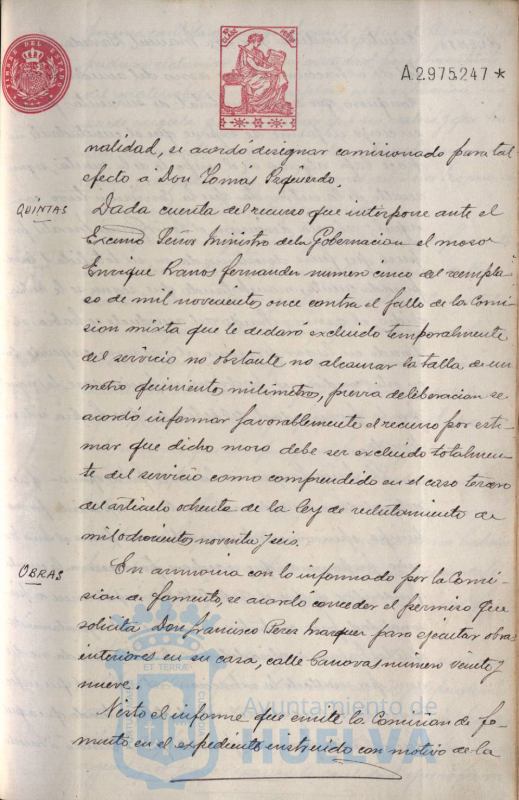 TIMBRE DEL ESTADO
A2.975.247*
nalidad, se acordó designar comisionado para tal
efecto á Don Tomás Yzquierdo.
QUINTAS
Dada cuenta del recurso que interpone ante el
Excmo Señor Ministro de la Gobernacion el mozo
Enrique Ramos Fernandez numero cinco del reempla-
zo de mil novecientos once contra el fallo de la Comi-
sion mixta que le declaró excluido temporalmente
del servicio no obstante no alcanzar la talla de un
metro quinientos milimetros, previa deliberacion se
acordó informar favorablemente el recurso por esti-
mar que dicho mozo debe ser excluido totalmen-
te del servicio como comprendido en el caso tercero
del articulo ochenta de la ley de reclutamiento de
mil ochocientos noventa y seis.
OBRAS
En armonia con lo informado por la Comi-
sion de fomento, se acordó conceder el permiso que
solicita Don Francisco Perez Marquez para ejecutar obras
interiores en su casa, calle Canovas número veinte y
nueve.
Visto el informe que emite la Comision de fo-
mento en el expediente instruido con motivo de la
ET TERRÆ
Ayuntamiento de
HUELVA